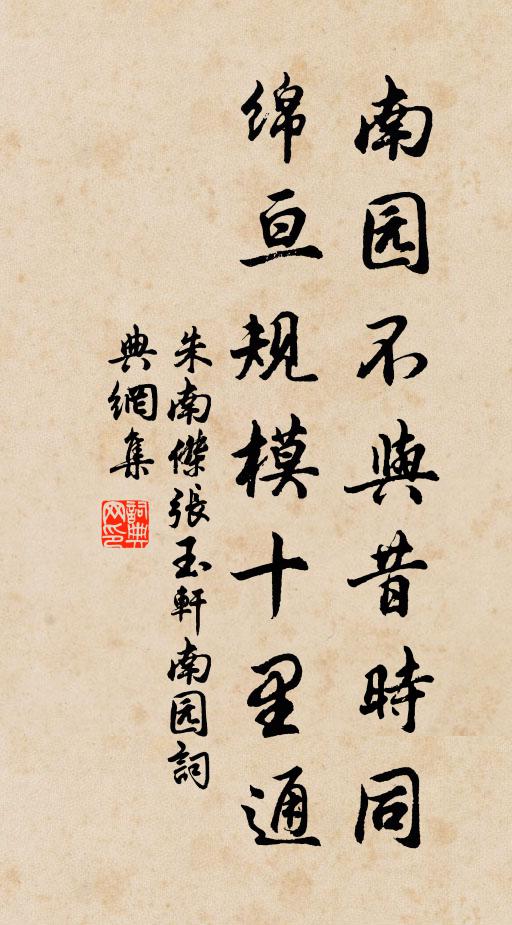 南园不與昔時同
绵亘规模十里通
朱南傑張玉軒南园詞
典網集
詞典
网印